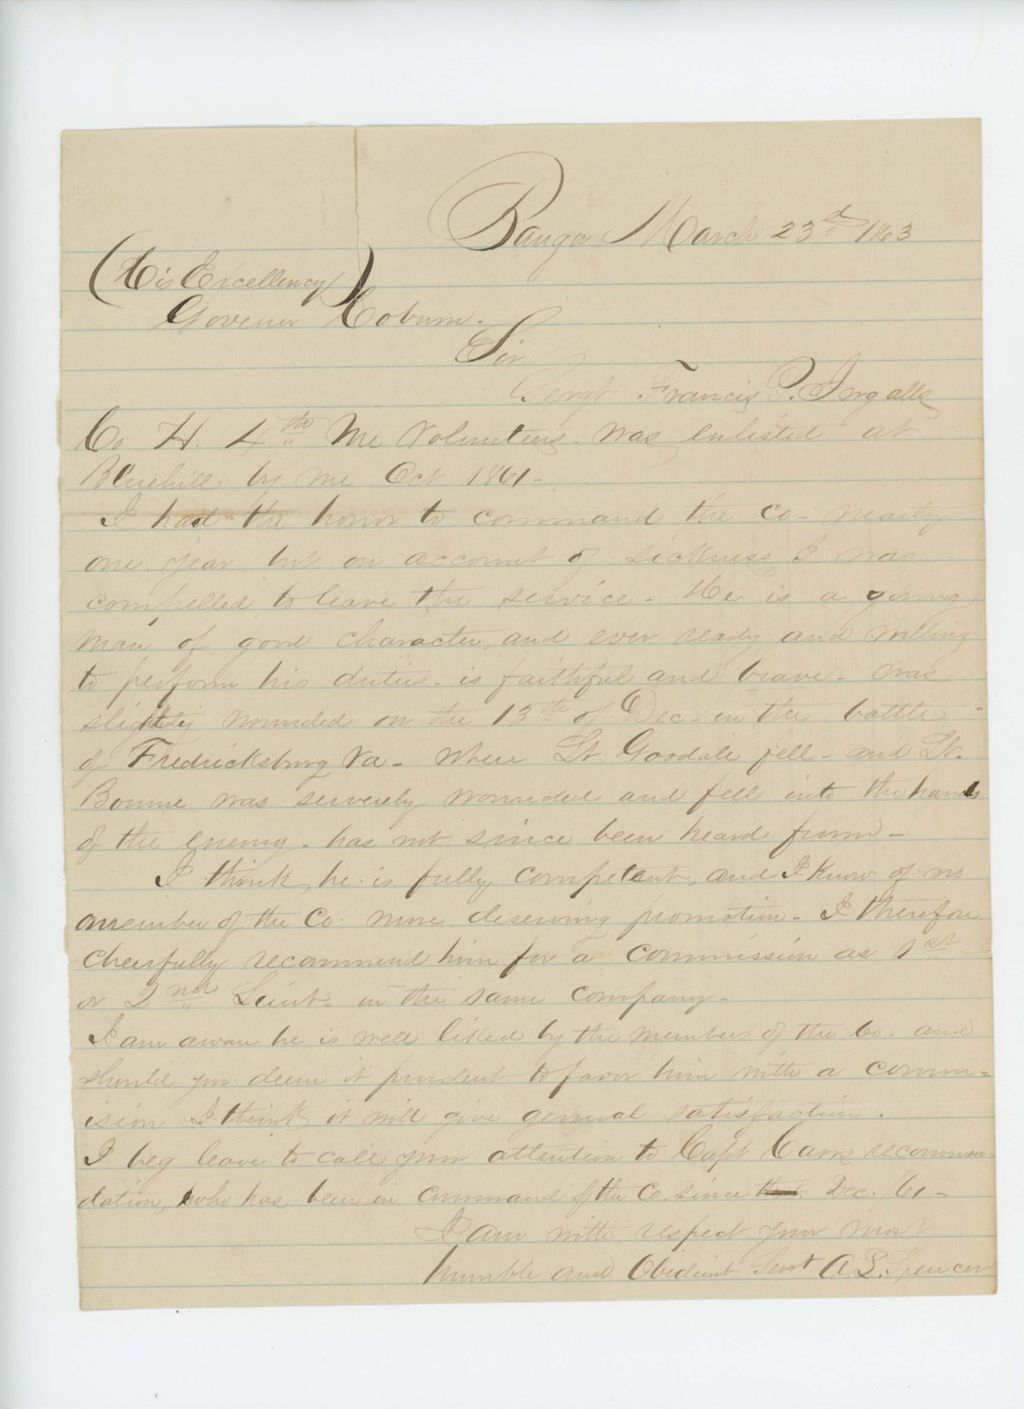 Bangor March 23rd 1863
(His Excellency)
Govener Coburn.
Sir
Sergt Francis P. Ingalls
Co H. 4th Me Volunteers was enlisted at
Bluehill by me Oct 1861-
I had the honor to command the Co- nearly
one year but on account of sickness I was
compelled to leave the service- He is a young
man of good character, and ever ready and willing
to perform his duties- is faithful and brave- was
slightly wounded on the 13th of Dec- in the battle
of Fredricksburg Va- where Lt Goodale fell- and Lt.
Bourne was serverely wounded and fell into the hands
of the enemy- has not since been heard from-
I think he is fully competent, and I know of no
member of the Co- more deserving promotion- I therefore
cheerfully recommend him for a commission as 1st
or 2nd Lieut- in the same company-
I am aware he is well liked by the members of the Co- and
should you deem it prudent to favor him with a comm=
ision I think it will give general satisfaction.
I beg leave to call your attention to Capt Carrs recommen
dation, who has been in command of the Co. since Dec. /61-
I am with respect your most
humble and Obedient Servt A. L. Spencer